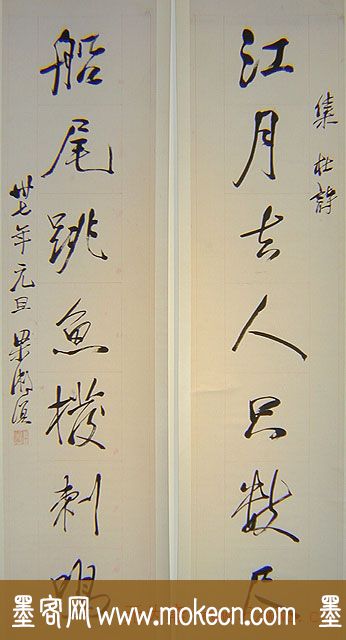 集杜詩
江月去人只數尺
船尾跳魚撥刺鳴
卅七年元旦 梁漱溟
墨客网 www.mokecn.com